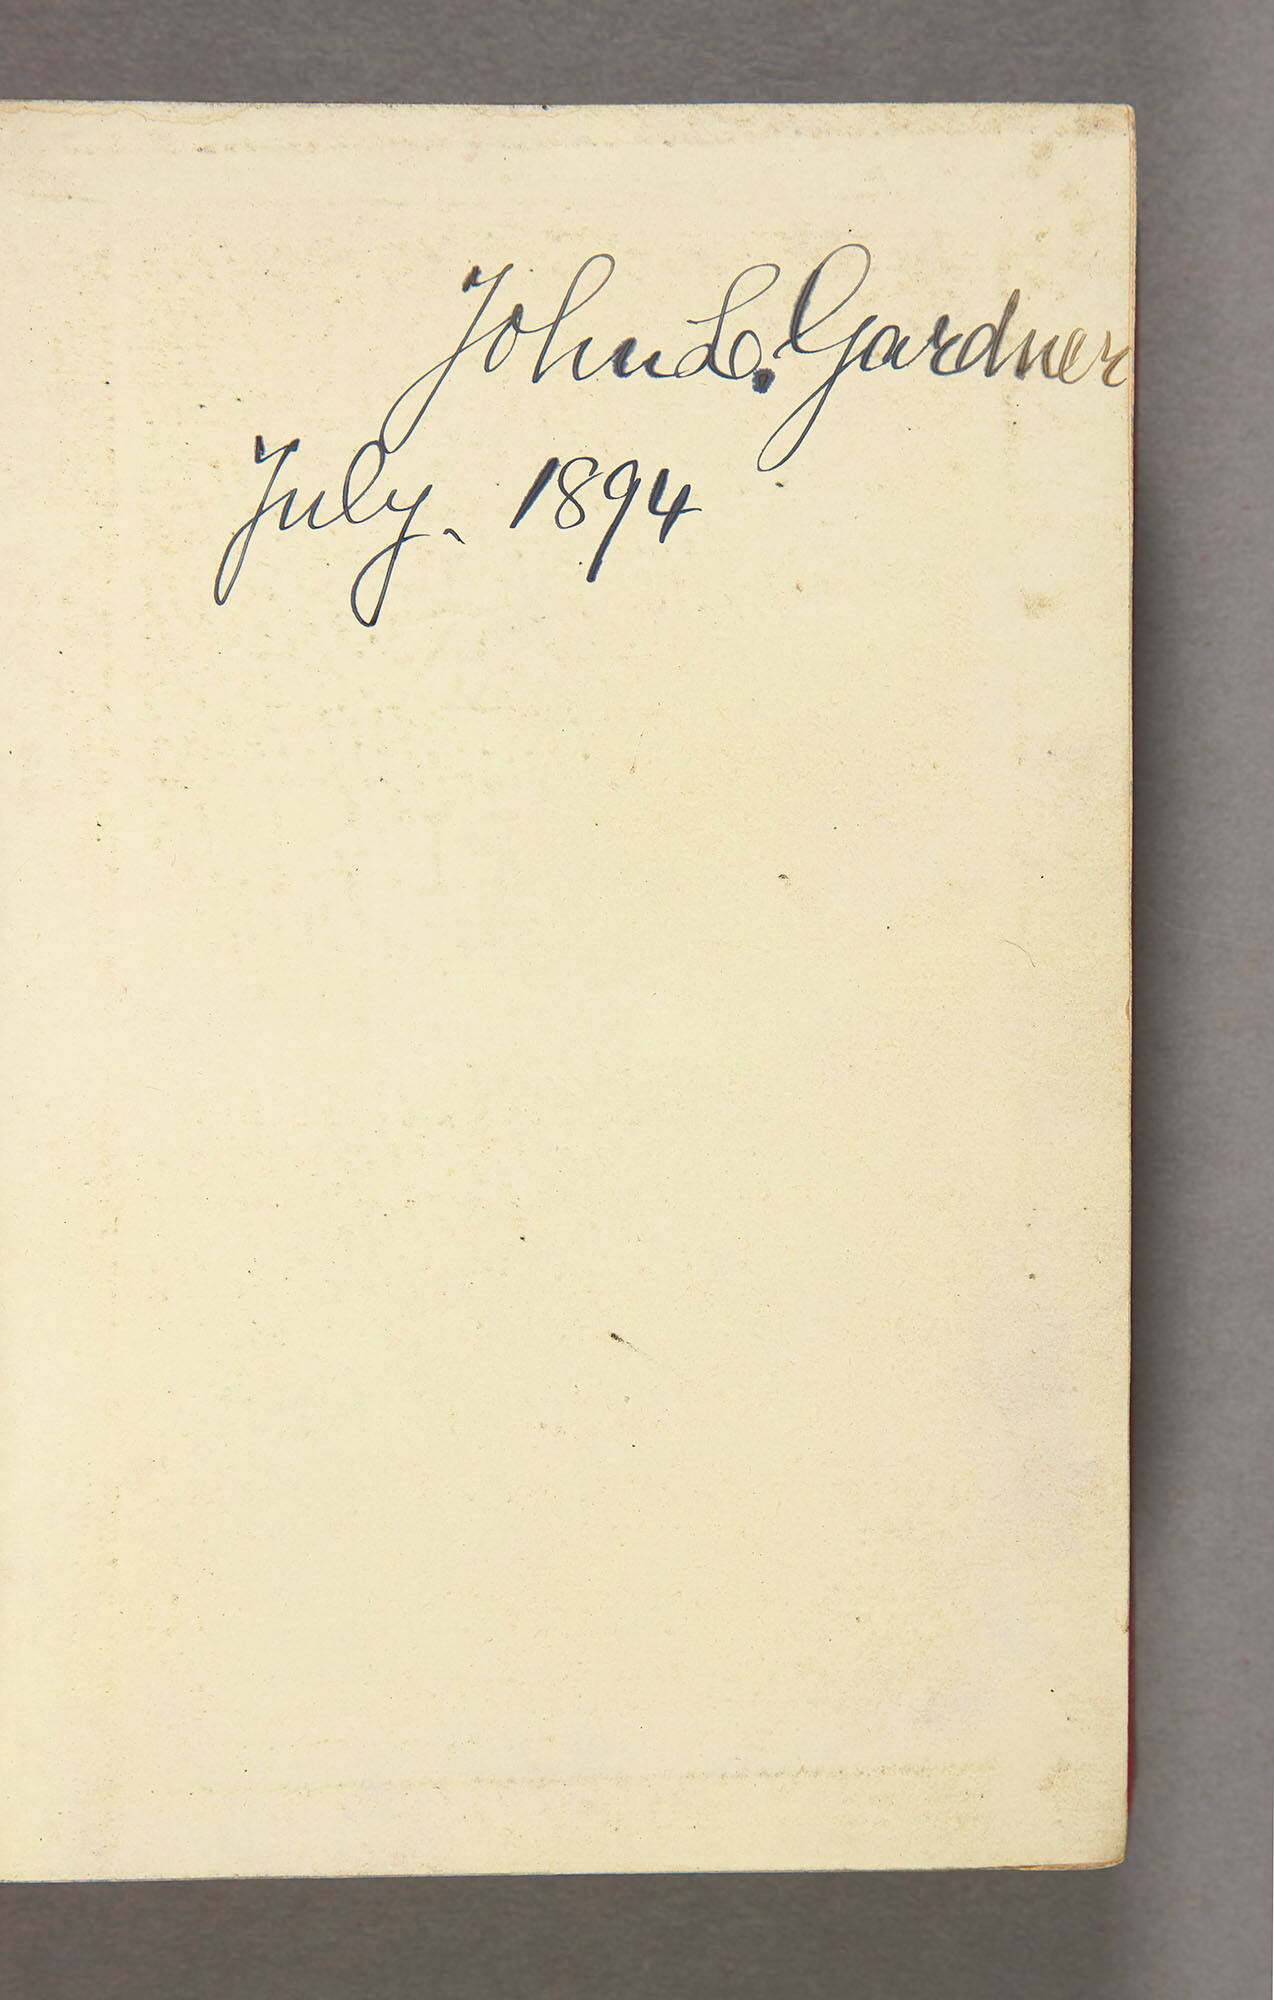 John L. Gardner
July. 1894